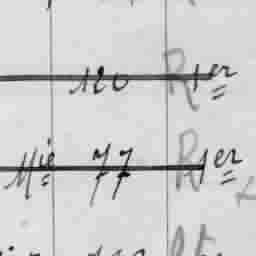 120 R 1er
Mie 77 R 1er